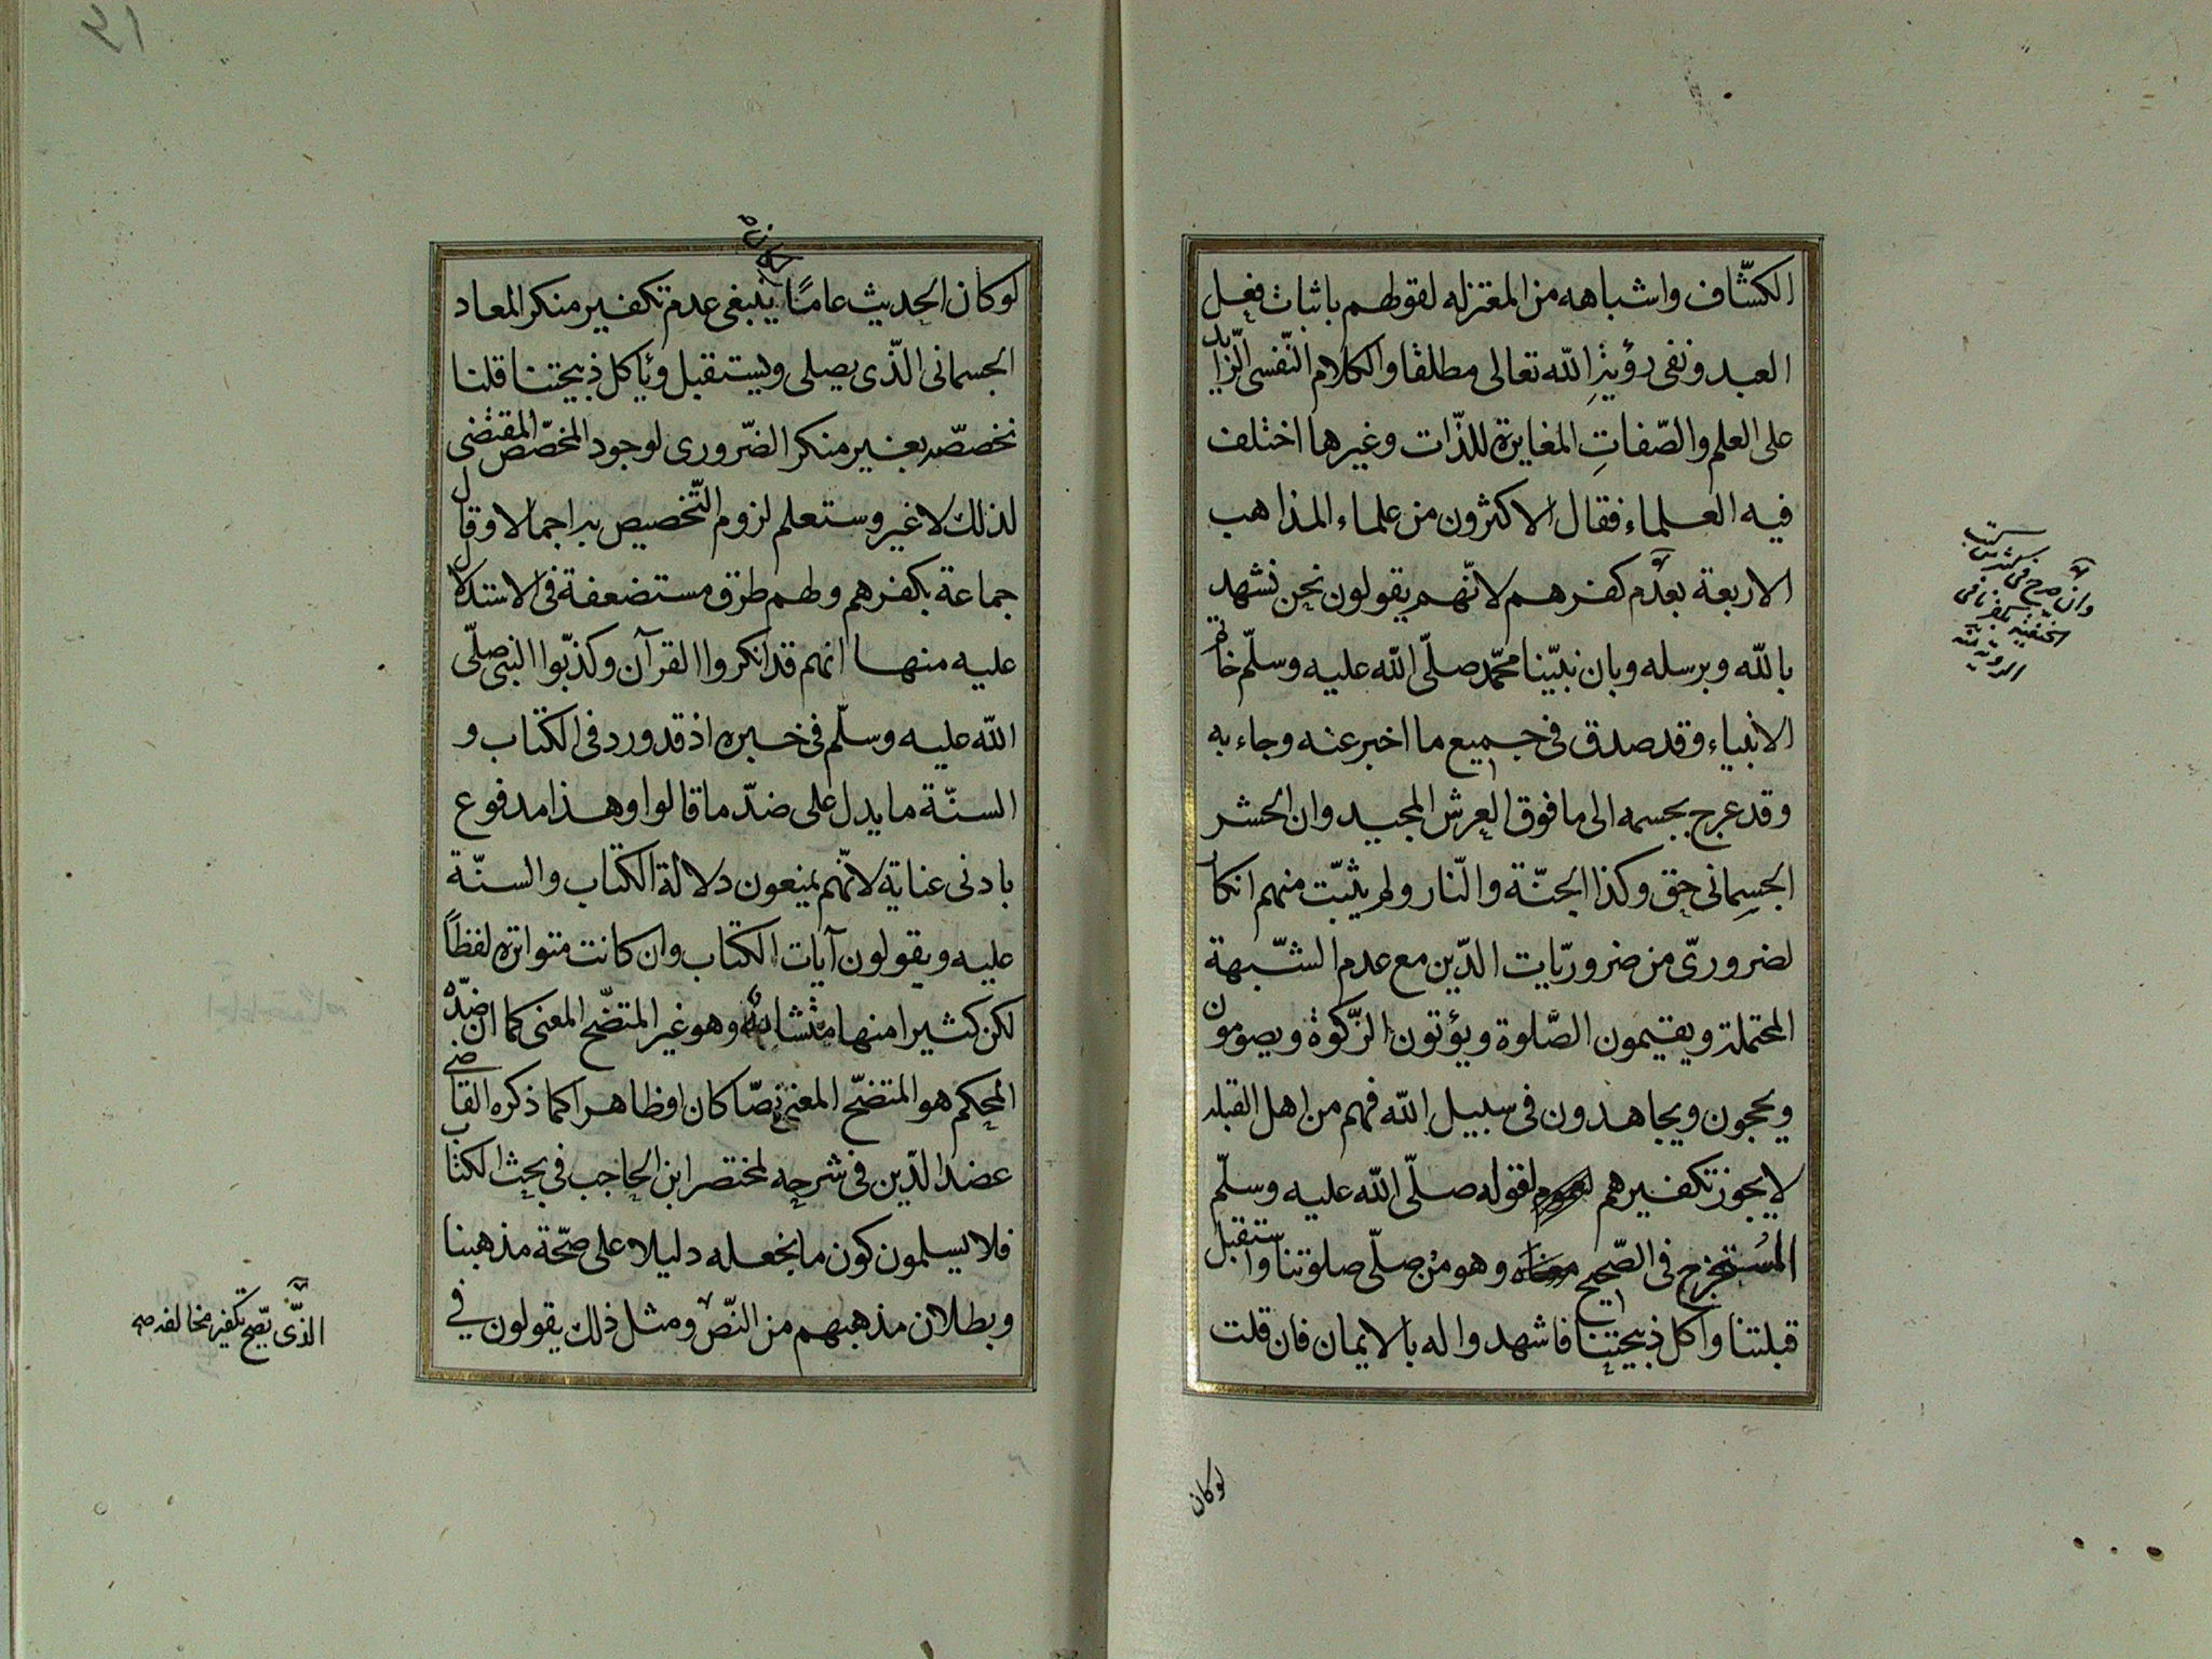 الكشّاف واشباهه من المعتزله لقولهم باثبات فعل
العبد ونفى رؤية الله تعالى مطلقا والكلام النّفسى الزّايد
على العلم والصّفاتِ المغايرة للذّات وغيرها اختلف
فيه العلماء فقال الاكثرون من علماء المذاهب
الاربعة بعدم كفرهم لانّهم يقولون نحن نشهد
بالله وبرسله وبان نبيّنا محمّد صلّى الله عليه وسلّم خاتم
الانبياء وقد صدق فى جميع ما اخبر عنه وجاء به
وقد عرج بجسمه الى ما فوق العرش المجيد وان الحشر
الجسمانى حق وكذا الجنّة والنّار ولم يثبت منهم انكار
لضرورىّ من ضروريّات الدّين مع عدم الشّبهة
المحتملة ويقيمون الصّلوة ويؤتون الزّكوة ويصومون
ويحجون ويجاهدون فى سبيل الله فهم من اهل القبله
لا يجوز تكفيرهم لقوله صلّى الله عليه وسلّم
المُستخرج فى الصّحيح وهو من صلّى صلوتنا واستقبل
قبلتنا واكل ذبيحتنا فاشهدوا له بالايمان فان قلت
لوكان
وان صرح فى
الحنفية بكفر نافى
الروية منه
لوكان الحديث عامّا ينبغى عدم تكفير منكر المعاد
الجسمانى الذّى يصلى ويستقبل ويأكل ذبيحتنا قلنا
نخصصّه بغير منكر الضّرورى لوجود المخصّص المقتضى
لذلك لا غير وستعلم لزوم التّخصيص به اجمالا وقال
جماعة بكفرهم ولهم طرق مستضعفة فى الاستدلال
عليه منها انهم قد انكروا القرآن وكذبّوا النبى صلّى
الله عليه وسلّم فى خبره اذ قد ورد فى الكتاب و
السنّة ما يدل على ضدّ ما قالوا وهذا مدفوع
بادنى عناية لانّهم يمنعون دلالة الكتاب والسنّة
عليه ويقولون آيات الكتاب وان كانت متواتره لفظاً
لكن كثيرا منها متشابه وهو غير المتضّح المعنى كما ان ضدّه
المحكم هو المتضّح المعنى نصّا كان او ظاهرا كما ذكره القاضى
عضد الدّين فى شرحه لمختصر ابن الحاجب فى بحث الكتاب
فلا يسلمون كون ما نجعله دليلا على صحّة مذهبنا
وبطلان مذهبهم من النّصّ ومثل ذلك يقولون في
الذّى يصّح تكفير مخالفه صح